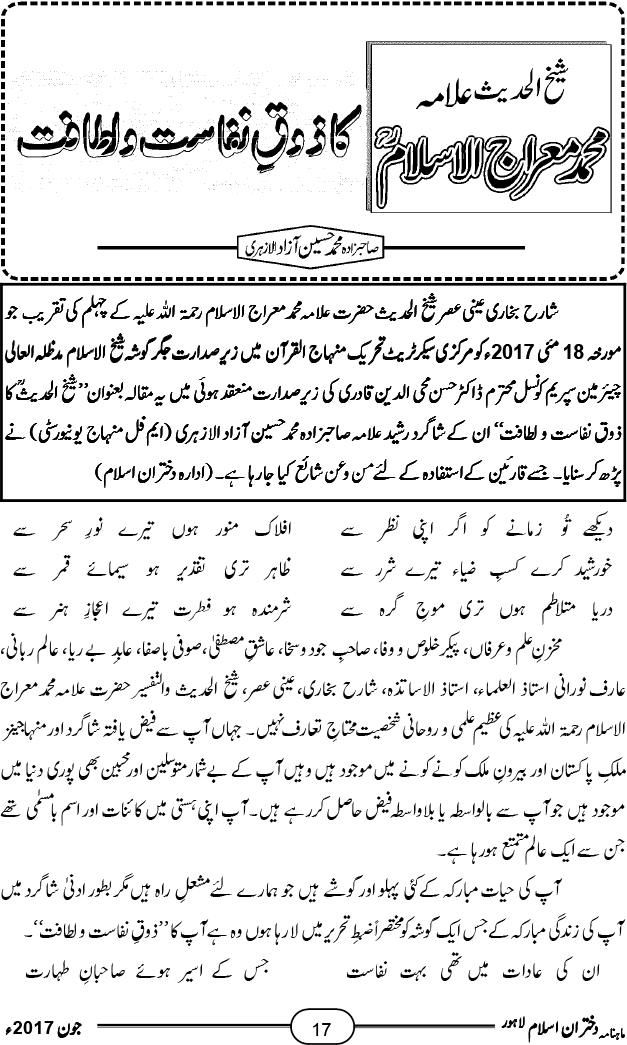 شیخ الحدیث علامہ
محمد معراج الاسلامؒ
کا ذوقِ نفاست و لطافت
صاحبزادہ محمد حسین آزاد الازہری
شارح بخاری عینی عصر شیخ الحدیث حضرت علامہ محمد معراج الاسلام رحمۃ اللہ علیہ کے چہلم کی تقریب جو
مورخہ 18 مئی 2017ء کو مرکزی سیکرٹریٹ تحریک منہاج القرآن میں زیر صدارت جگر گوشہ شیخ الاسلام مدظلہ العالی
چیئرمین سپریم کونسل محترم ڈاکٹر حسن محی الدین قادری کی زیر صدارت منعقد ہوئی میں یہ مقالہ بعنوان ’’شیخ الحدیثؒ کا
ذوق نفاست و لطافت‘‘ ان کے شاگرد رشید علامہ صاحبزادہ محمد حسین آزاد الازہری (ایم فل منہاج یونیورسٹی) نے
پڑھ کر سنایا۔ جسے قارئین کے استفادہ کے لئے من و عن شائع کیا جارہا ہے۔ (ادارہ دختران اسلام)
دیکھے تُو زمانے کو اگر اپنی نظر سے افلاک منور ہوں تیرے نورِ سحر سے
خورشید کرے کسبِ ضیاء تیرے شرر سے ظاہر تری تقدیر ہو سیمائے قمر سے
دریا متلاطم ہوں تری موجِ گرہ سے شرمندہ ہو فطرت تیرے اعجازِ ہنر سے
مخزنِ علم و عرفاں، پیکر خلوص و وفا، صاحبِ جود و سخا، عاشقِ مصطفیٰ، صوفی باصفا، عابدِ بے ریا، عالم ربانی،
عارف نورانی استاذ العلماء، استاذ الاساتذہ، شارح بخاری، عینی عصر، شیخ الحدیث والتفسیر حضرت علامہ محمد معراج
الاسلام رحمۃ اللہ علیہ کی عظیم علمی و روحانی شخصیت محتاجِ تعارف نہیں۔ جہاں آپ سے فیض یافتہ شاگرد اور منہاجینز
ملکِ پاکستان اور بیرونِ ملک کونے کونے میں موجود ہیں وہیں آپ کے بے شمار متوسلین اور محبین بھی پوری دنیا میں
موجود ہیں جو آپ سے بالواسطہ یا بلاواسطہ فیض حاصل کررہے ہیں۔ آپ اپنی ہستی میں کائنات اور اسم بامسمّٰی تھے
جن سے ایک عالم متمتع ہورہا ہے۔
آپ کی حیات مبارکہ کے کئی پہلو اور گوشے ہیں جو ہمارے لئے مشعلِ راہ ہیں مگر بطور ادنیٰ شاگرد میں
آپ کی زندگی مبارکہ کے جس ایک گوشہ کو مختصراً ضبطِ تحریر میں لارہا ہوں وہ ہے آپ کا ’’ذوقِ نفاست و لطافت‘‘۔
ان کی عادات میں تھی بہت نفاست جس کے اسیر ہوئے صاحبانِ طہارت
ماہنامہ دختران اسلام لاہور 17 جون 2017ء